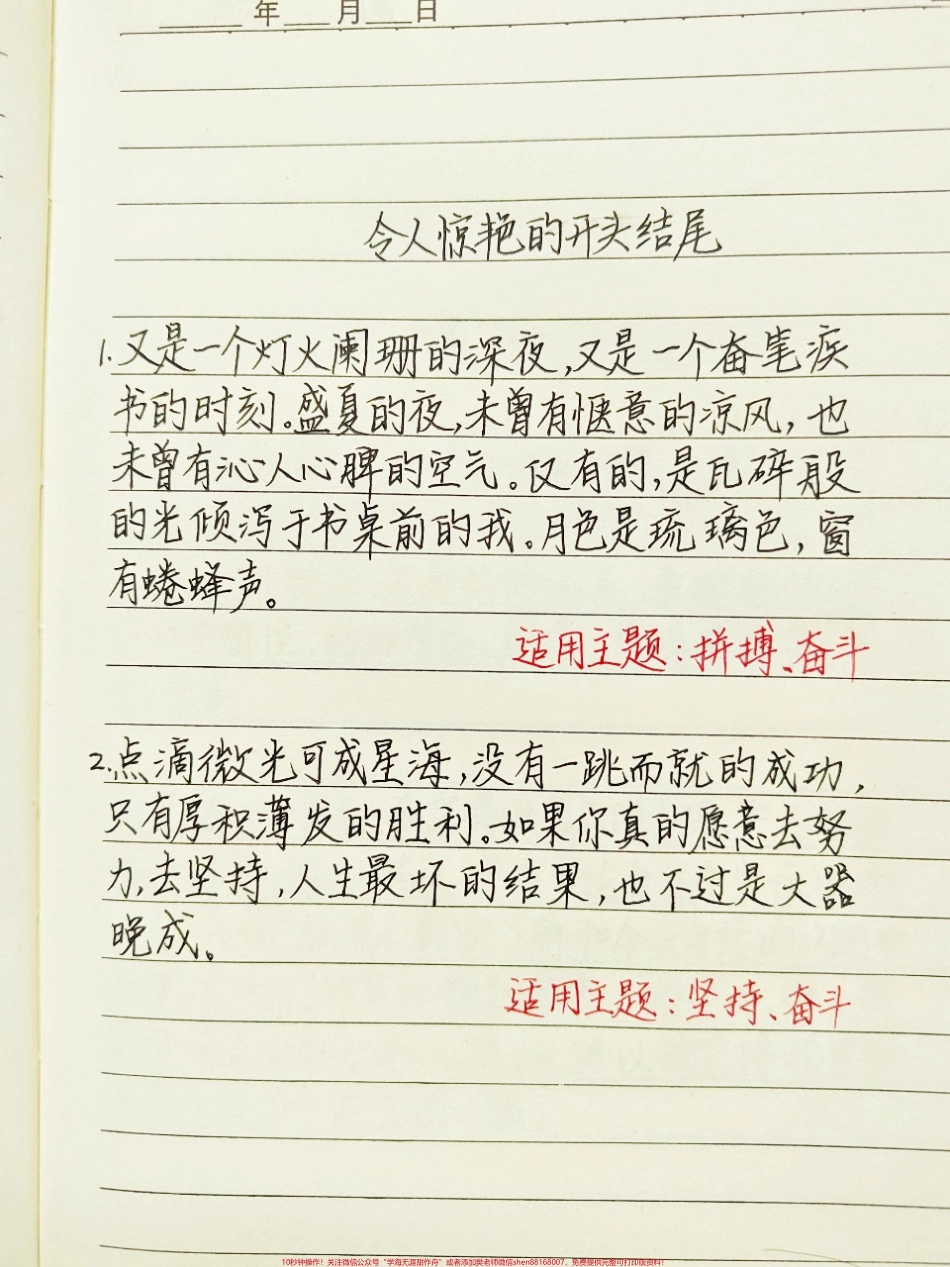 年 月 日
令人惊艳的开头结尾
1.又是一个灯火阑珊的深夜,又是一个奋笔疾
书的时刻。盛夏的夜,未曾有惬意的凉风,也
未曾有沁人心脾的空气。仅有的,是瓦碎般
的光倾泻于书桌前的我。月色是琉璃色,窗
有蜷蜂声。
适用主题:拼搏、奋斗
2.点滴微光可成星海,没有一跳而就的成功,
只有厚积薄发的胜利。如果你真的愿意去努
力,去坚持,人生最坏的结果,也不过是大器
晚成。
适用主题:坚持、奋斗
10秒钟操作!关注微信公众号“学海无涯甜作舟”或者添加樊老师微信shen88168007,免费提供完整可打印版资料!